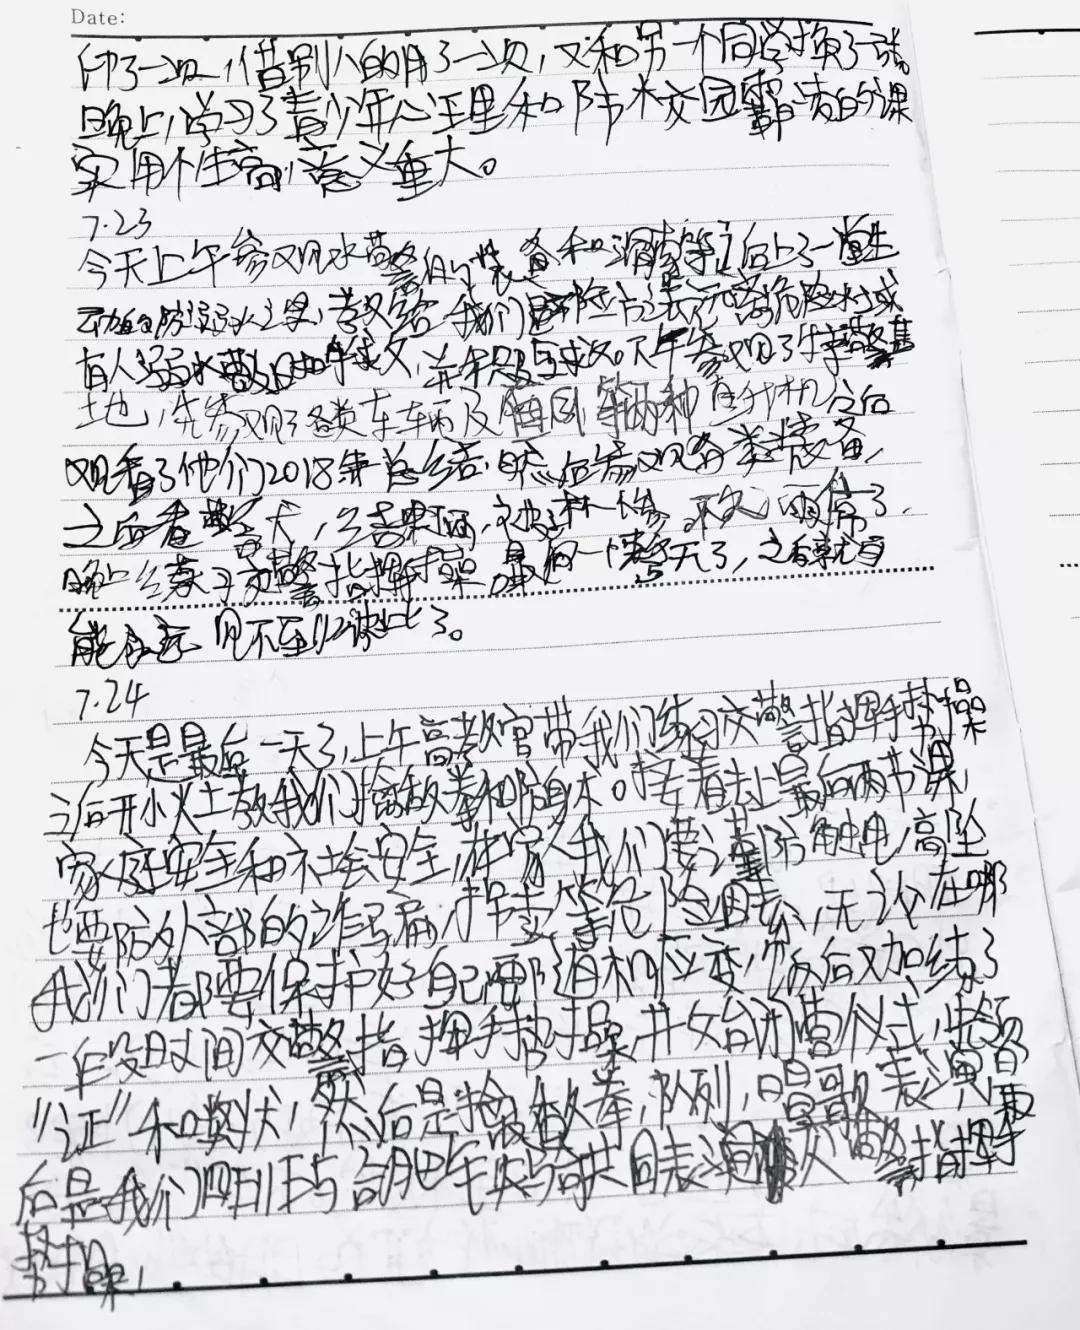 Date:
印了一次,借别人的用了一次,又和另一个同学换了一张。
晚上,学习了青少年心理和防木交园霸凌的课
实用个性高,意义重大。
7.23
今天上午参观水警的装备和消毒等之后上了一堂生
动的防溺水之课,教给我们遇险后远离危险水域
有人溺水敢呼救。下午参观了特警基
地,先参观了各类车辆及等两种直升机之后
观看了他们2018年总结,然后参观各类装备,
之后看警犬,结果雨,不久雨停了,
晚上练了交警指挥手操,最后一整天了,之后就有
能永远见不到彼此了。
7.24
今天是最后一天了,上午高教官带我们练习交警指挥手势操
之后开小火土教我们擒敌拳和防身术。接着去上最后两节课,
家庭安全和社会安全,在家人我们要注意防触电,高坠
也要防外部的诈骗,拐卖等危险因素,无论在哪
我们都要保护好自己要随机应变,饭后又加练了
一段时间交警指挥手势操,并始闭营仪式,先颁
“证”和奖状,然后是擒敌拳,队列,唱歌表演,最
后是我们四班与合肥共同表演交警指挥手
势操,